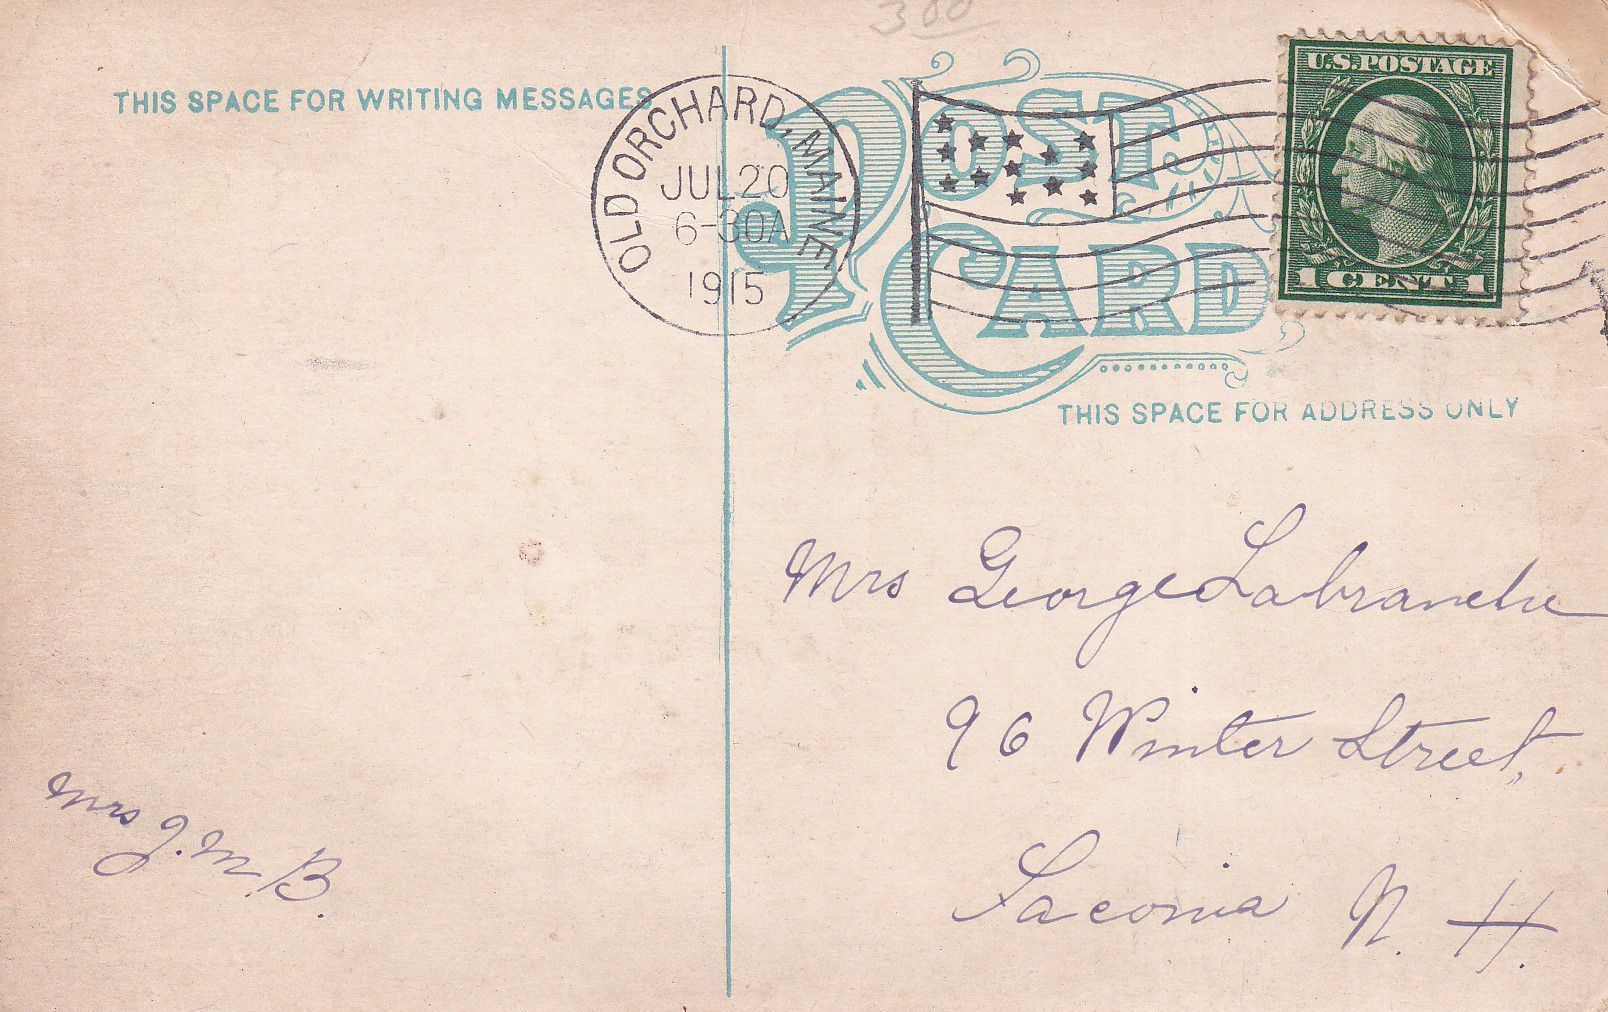 300
THIS SPACE FOR WRITING MESSAGES
OLD ORCHARD, MAINE
JUL 20
6-30A
1915
POST CARD
U.S. POSTAGE
1 CENT 1
THIS SPACE FOR ADDRESS ONLY
Mrs George Labranche
96 Winter Street,
Laconia N. H.
Mrs J. M. B.